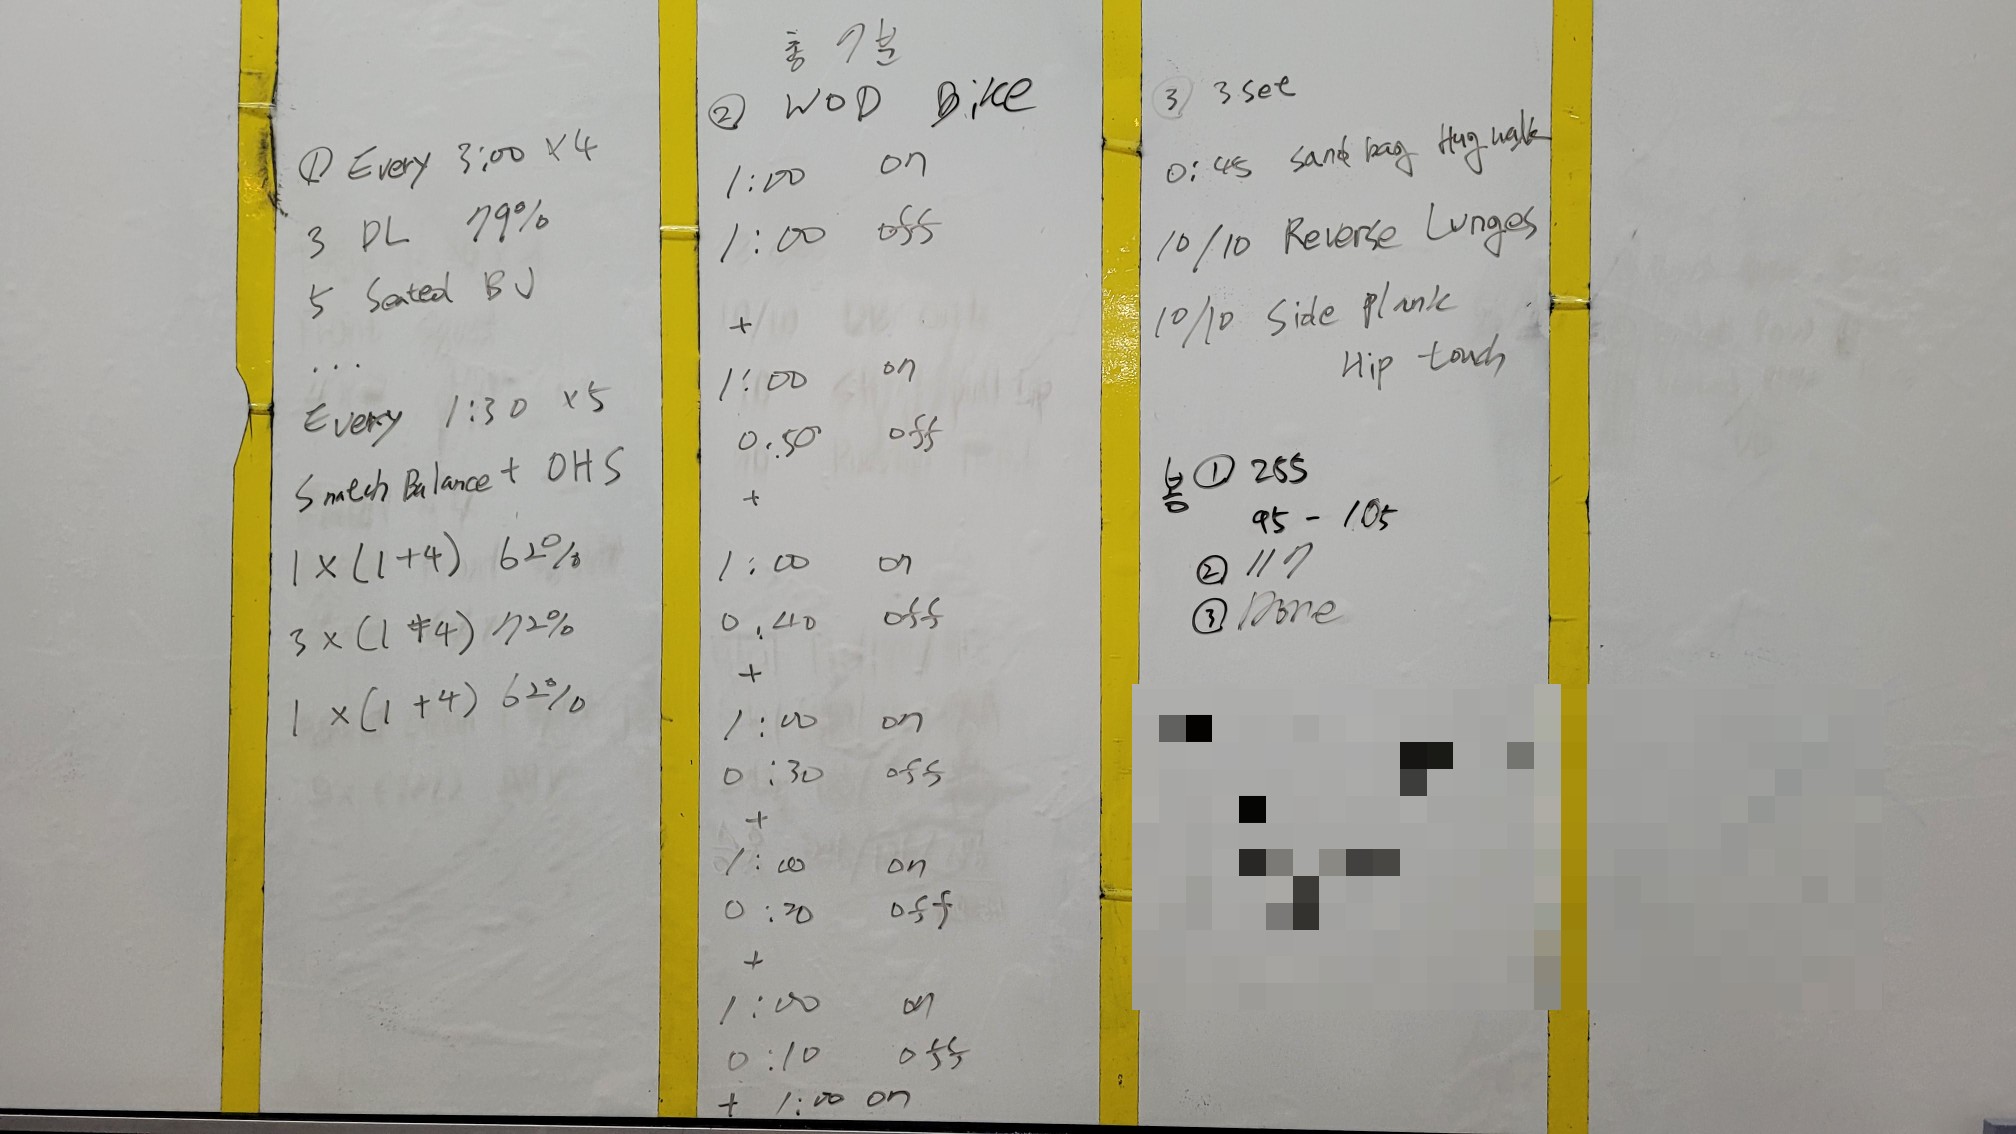 ① Every 3:00 x4
3 DL 79%
5 Seated BJ
...
Every 1:30 x5
Snatch Balance + OHS
1 x (1+4) 62%
3 x (1+4) 72%
1 x (1+4) 62%
총 7분
② WOD Bike
1:00 on
1:00 off
+
1:00 on
0:50 off
+
1:00 on
0:40 off
+
1:00 on
0:30 off
+
1:00 on
0:20 off
+
1:00 on
0:10 off
+ 1:00 on
③ 3 set
0:45 sand bag Hug walk
10/10 Reverse Lunges
10/10 Side Plank
Hip touch
봄 ① 255
95 - 105
② 117
③ Done